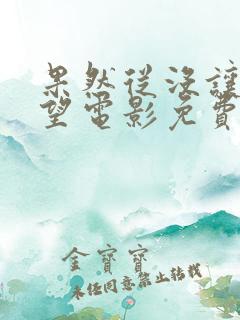 果然從沒讓
望電影免費
金寶寶
未经同意禁止转载